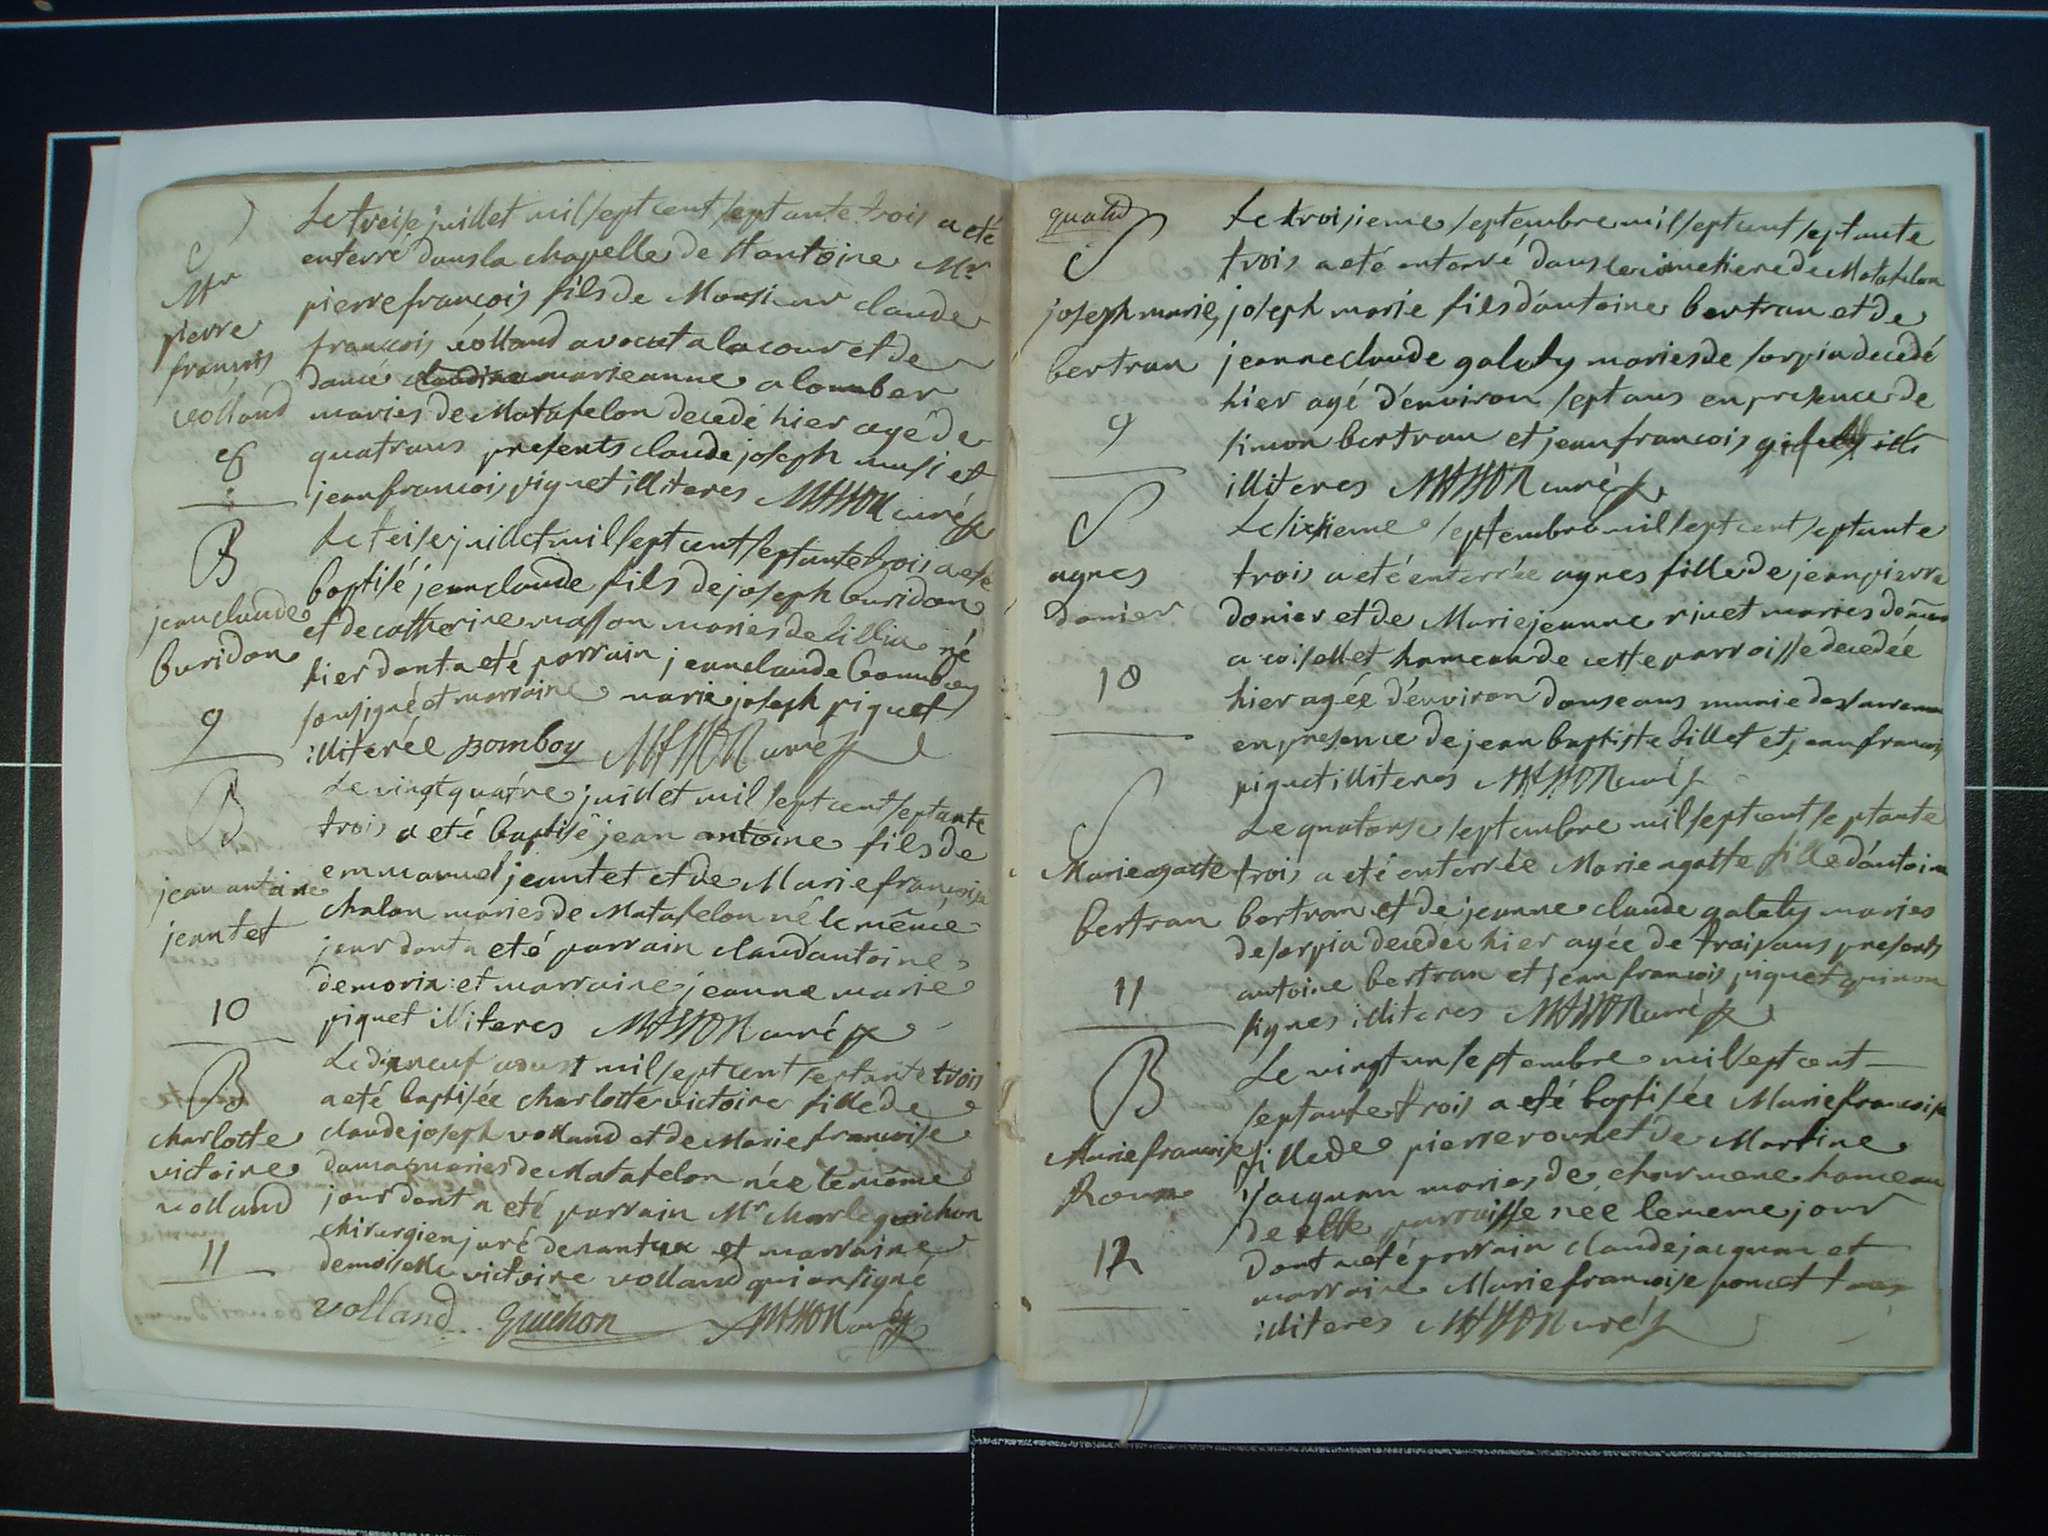 S
Mr
pierre
francois
volland
8
Le treise juillet mil sept cent septante trois a eté
enterré dans la chapelle de st antoine Mr
pierre francois fils de Monsieur claude
francois volland avocat a la cour et de
marieanne alomber
maries de Matafelon decedé hier agé de
quatrans presents claude joseph musi et
jean francois piquet illiteres MASSON curé
B
jean claude
buridon
9
Le seise juillet mil sept cent septante trois a eté
baptisé jean claude fils de joseph buridon
et de catherine masson maries de sillia né
hier dont a eté parrain jean claude bomboy
sousigné et marraine marie joseph piquet
illiterée Bomboy MASSON curé
B
jean antoine
jeantet
10
Le vingt quatre juillet mil sept cent septante
trois a eté baptisé jean antoine fils de
emmanuel jeantet et de Marie francoise
chalon maries de Matafelon né le même
jour dont a eté parrain claud'antoine
demorix et marraine jeanne marie
piquet illiteres MASSON curé
B
charlotte
victoire
volland
11
Le dixneuf aoust mil sept cent septante trois
a eté baptisée charlotte victoire fille de
claude joseph volland et de Marie francoise
damas maries de Matafelon née le même
jour dont a eté parrain Mr charle guichon
chirurgien juré de nantua et marraine
demoiselle victoire volland qui on signé
volland guichon MASSON curé
S
joseph marie
bertran
9
Le troisieme septembre mil sept cent septante
trois a eté enterré dans le cimetiere de Matafelon
joseph marie fils d'antoine bertran et de
jeanne claude galety maries de sorpia decedé
hier agé d'environ sept ans en presence de
simon bertran et jean francois
illiteres MASSON curé
S
agnes
donier
10
Le sixieme septembre mil sept cent septante
trois a eté enterrée agnes fille de jean pierre
donier et de Marie jeanne rivet maries
a coisellet hameau de cette parroisse decedée
hier agée d'environ douse ans munie des
en presence de jean baptiste sillet et jean francois
piquet illiteres MASSON curé
S
Marie agatte
bertran
11
Le quatorse septembre mil sept cent septante
trois a eté enterrée Marie agatte fille d'antoine
bertran et de jeanne claude galety maries
de sorpia decedée hier agée de trois ans presents
antoine bertran et jean francois piquet qui non
signes illiteres MASSON curé
B
Marie francoise
Roux
12
Le vingt un septembre mil sept cent
septante trois a eté baptisée Marie francoise
fille de pierre roux et de Martine
jacquan maries de charmene hameau
de cette parroisse née le meme jour
dont a eté parrain claude jacquan et
marraine Marie francoise poncet tous
illiteres MASSON curé